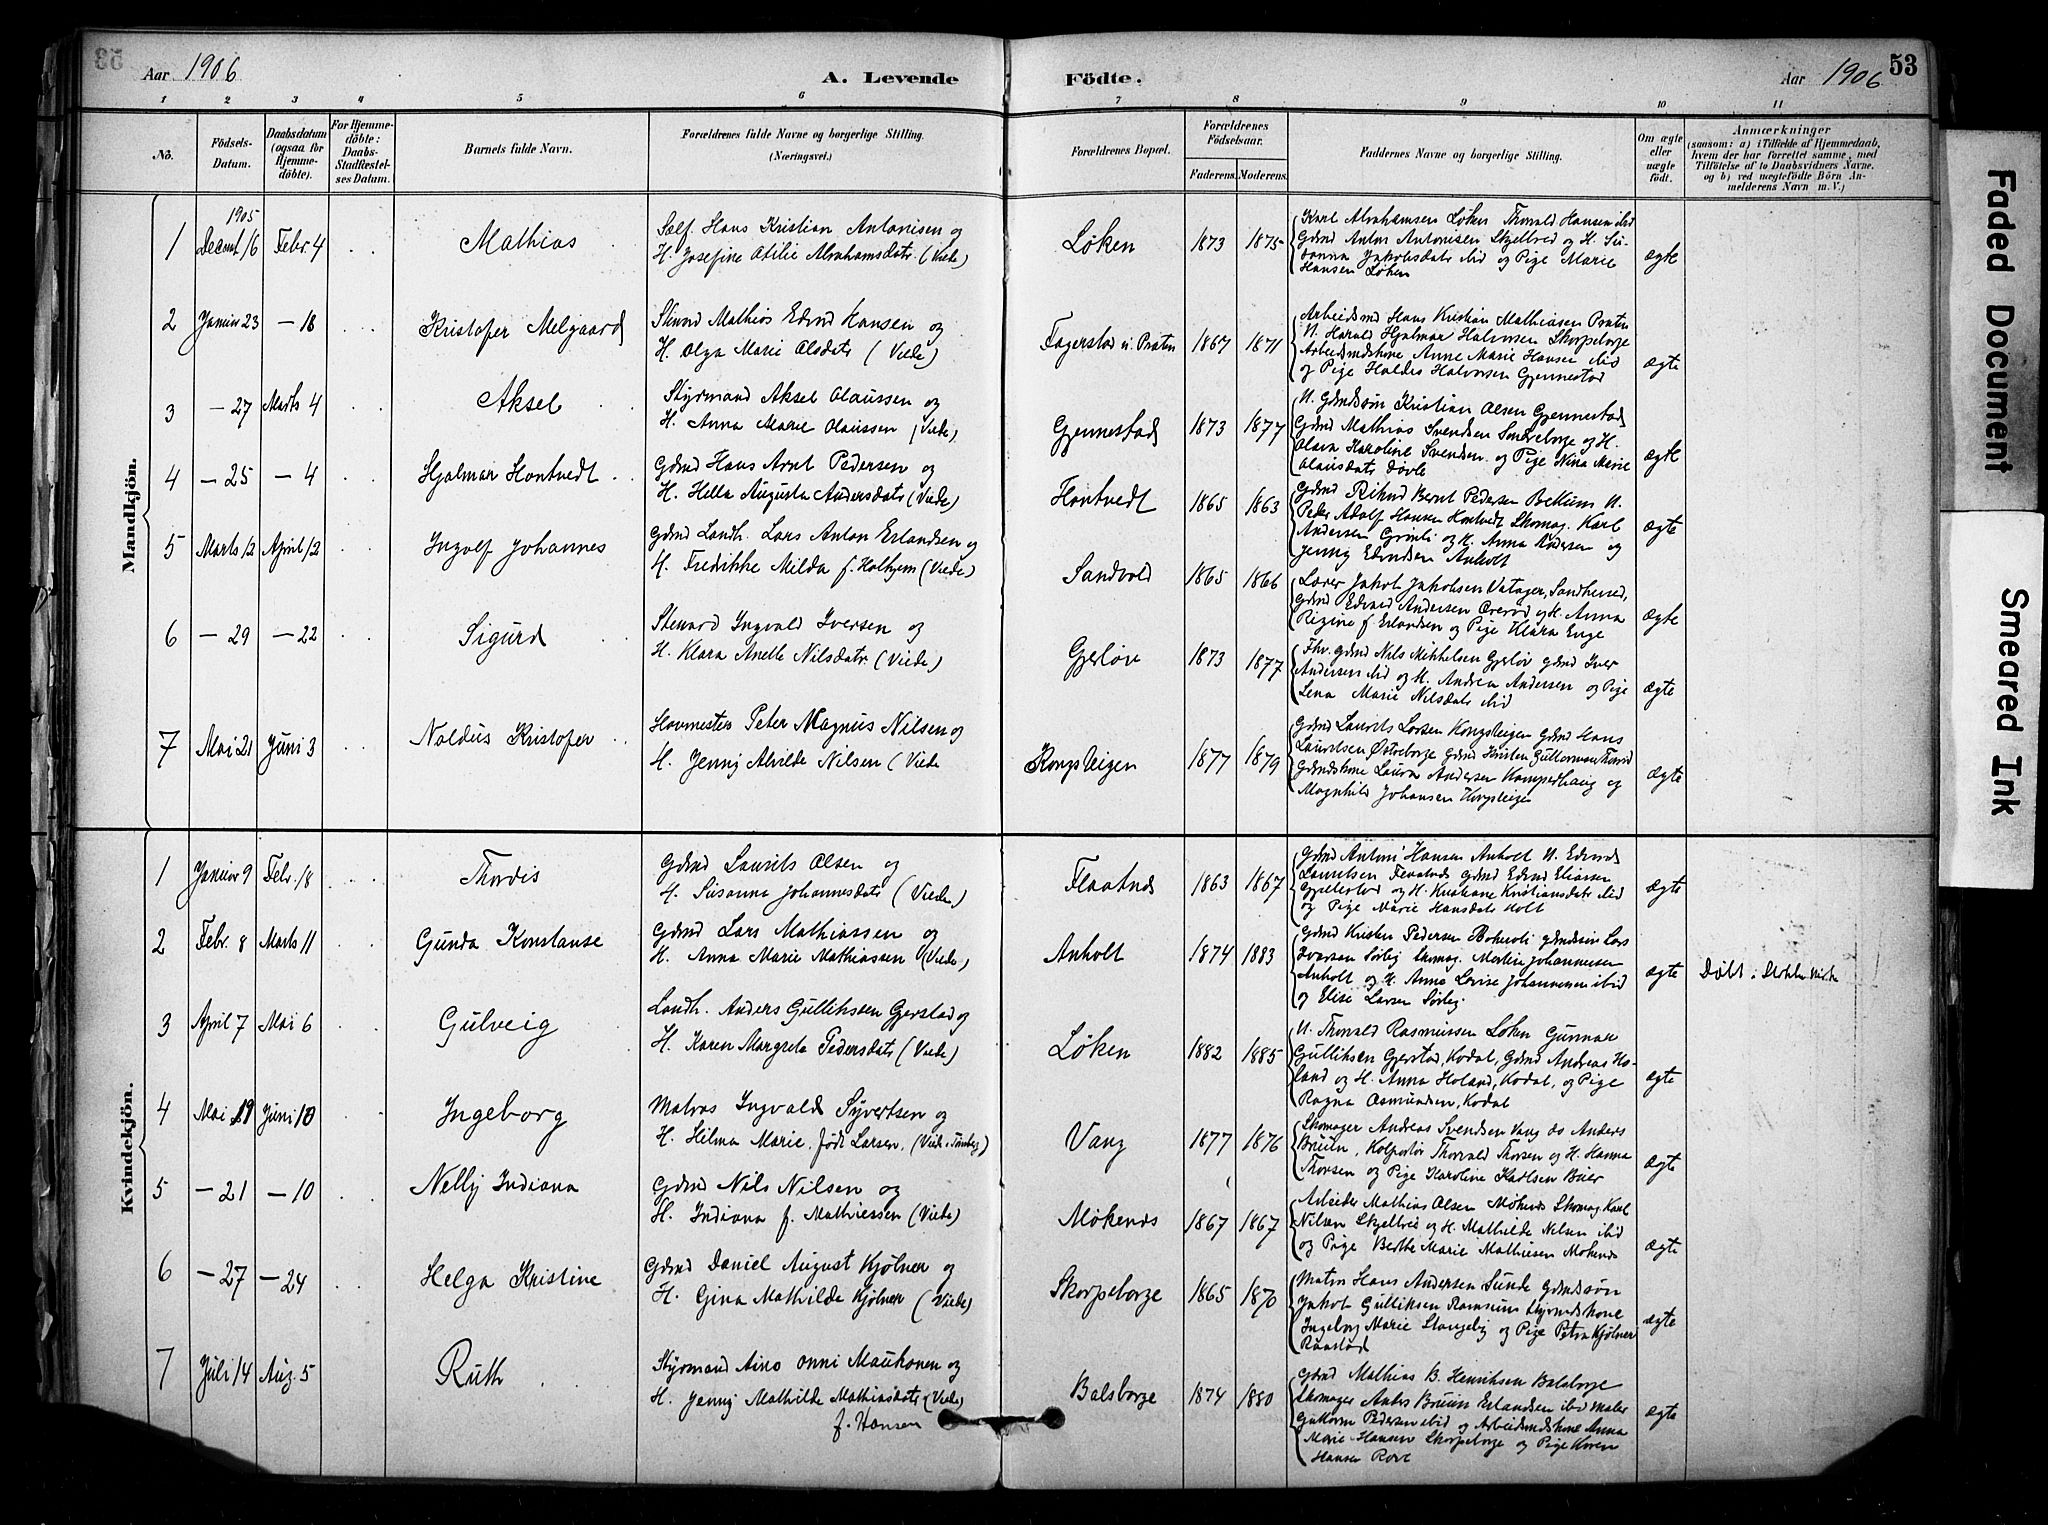 Aar 1906
A. Levende
Födte.
Aar 1906
53
1 2 3 4 5 6 7 8 9 10 11
No.
Födsels-Datum.
Daabsdatum (ogsaa for Hjemme-döbte).
For Hjemme-döbte: Daabs-Stadfæstel-ses Datum.
Barnets fulde Navn.
Forældrenes fulde Navne og borgerlige Stilling.
(Næringsvei.)
Forældrenes Bopæl.
Forældrenes Födselsaar.
Faderens. Moderens.
Faddernes Navne og borgerlige Stilling.
Om ægte eller uægte födt.
Anmærkninger
(saasom: a) i Tilfælde af Hjemmedaab,
hvem der har forrettet samme, med
Tilföielse af to Daabsvidners Navne.
og b) ved uægtefödte Börn An-
melderens Navn m. V.)
Mandkjön.
1905
1 Decemb. 16 Febr. 4 Mathias
Self. Hans Kristian Antonisen og
H. Josefine Otilie Abrahamsdatr. (Viede)
Løken 1873 1875
Karl Abrahamsen Løken Thorvald Hansen ibid
Gdmd Anton Antonisen Skjelbred og H. Su-
sanna Jakobsdatr ibid og Pige Marie
Hansen Løken
ægte
2 Januar 23 — 18 Kristofer Melgaard
Mathias Edvard Hansen og
H. Olga Marie Olsdatr (Viede)
Fagerstad u. Præstn 1867 1871
Arbeidsmd Hans Kristian Mathiasen Præstn
U. Harald Hjalmar Halvorsen Skorpeborge
Arbeidsmdskone Anne Marie Hansen ibid
og Pige Haldis Halvorsen Gjennestad
ægte
3 — 27 Marts 4 Aksel
Styrmand Aksel Olaussen og
H. Anna Marie Olaussen (Viede)
Gjennestad 1873 1877
U. Gdmdssøn Kristian Olsen Gjennestad
Gdmd Mathias Svendsen Søndreborge og H.
Olava Karoline Svendsen og Pige Nina Marie
Olausdatr Døvle
ægte
4 — 25 — 4 Hjalmar Hontvedt
Gdmd Hans Arnt Pedersen og
H. Hella Augusta Andersdatr (Viede)
Hontvedt 1865 1863
Gdmd Rikard Bernt Pedersen Bettum U.
Peder Adolf Hansen Hontvedt Skomag. Karl
Andersen Grimli og H. Anna Andersen og
Jenny Edvardsen Anholt
ægte
5 Marts 12 April 12 Ingolf Johannes
Gdmd Landh. Lars Anton Erlandsen og
H. Fredrikke Milda f. Holhjem (Viede)
Sandvold 1865 1866
Lærer Jakob Jakobsen Vatager, Sandherred,
Gdmd Edvard Andersen Ørerød og H. Anna
Regine f. Erlandsen og Pige Klara Enge
ægte
6 — 29 — 22 Sigurd
Steward Ingvald Iversen og
H. Klara Anette Nilsdatr (Viede)
Gjerløv 1873 1877
Fhv. gdmd Nils Mikkelsen Gjerløv gdmd Iver
Andersen ibid og H. Andrea Andersen og Pige
Lena Marie Nilsdatr ibid
ægte
7 Mai 21 Juni 3 Noldus Kristofer
Hovmester Peter Magnus Nilsen og
H. Jenny Alvilde Nilsen (Viede
Kongsteigen 1877 1879
Gdmd Laurits Larsen Kongsteigen gdmd Hans
Lauritsen Østreborge gdmd Kristen Guttormsen
Gdmdskone Laura Andersen Kamperhaug og
Magnhild Johansen Kongsteigen
ægte
Kvindekjön.
1 Januar 9 Febr. 18 Thordis
Gdmd Laurits Olsen og
H. Susanna Johannesdatr (Viede)
Flaatnes 1863 1867
Gdmd Anton Hansen Anholt U. Edvard
Lauritsen Flaatnes Gdmd Edvard Eliasen
Gjellestad og H. Kristiane Kristiansdatr ibid
og Pige Marie Hansdatr Holt
ægte
2 Febr. 8 Marts 11 Gunda Konstanse
Gdmd Lars Mathiassen og
H. Anna Marie Mathiassen (Viede)
Anholt 1874 1883
Gdmd Kristen Pedersen Bokeroli gdmdssøn Lars
Ivarsen Sørby Skomag. Martin Johannessen
Anholt og H. Anna Lovise Johannessen ibid
og Elise Larsen Sørby
ægte Døbt i Stokke kirke
3 April 7 Mai 6 Gulveig
Landh. Anders Gulliksen Gjerstad og
H. Karen Margrete Pedersdatr (Viede)
Løken 1882 1885
U. Thorvald Rasmussen Løken Gunnar
Gulliksen Gjerstad, Kodal, Gdmd Andreas Ho-
land og H. Anna Holand, Kodal, og Pige
Ragna Asmundsen, Kodal
ægte
4 Mai 19 Juni 10 Ingeborg
Matros Ingvald Syvertsen og
H. Hilma Marie, født Larsen, (Vied i Tønsberg)
Vang 1877 1876
Skomager Andreas Svendsen Vang do Anders
Bruun, Kolportør Thorvald Thorsen og H. Hanna
Thorsen og Pige Karoline Karlsen Buer
ægte
5 — 21 — 10 Nelly Indiana
Gdmd Nils Nilsen og
H. Indiana f. Mathiessen (Viede)
Møkenes 1867 1867
Arbeider Mathias Olsen Møkenes Skomag Karl
Nilsen Skjelbred og H. Mathilde Nilsen ibid
og Pige Berthe Marie Mathiesen Møkenes
ægte
6 — 27 — 24 Helga Kristine
Gdmd Daniel August Kjølner og
H. Gina Mathilde Kjølner (Viede)
Skorpeborge 1865 1870
Matros Hans Andersen Sunde Gdmdssøn
Jakob Gulliksen Ramsum Styrmdskone
Ingeborg Marie Stangeby og Pige Petra Kjølner
Raastad
ægte
7 Juli 14 Aug. 5 Ruth
Styrmand Aino Onni Maukonen og
H. Jenny Mathilde Mathiasdatr (Viede)
f. Hansen
Balsborge 1874 1880
Gdmd Mathias B. Henriksen Balsborge
Skomager Anders Bruun Erlandsen ibid Maler
Guttorm Pedersen ibid og Arbeidsmdskone Anna
Marie Hansen Skorpeborge og Pige Karen
Hansen Rove
ægte
Faded Document
Smeared Ink